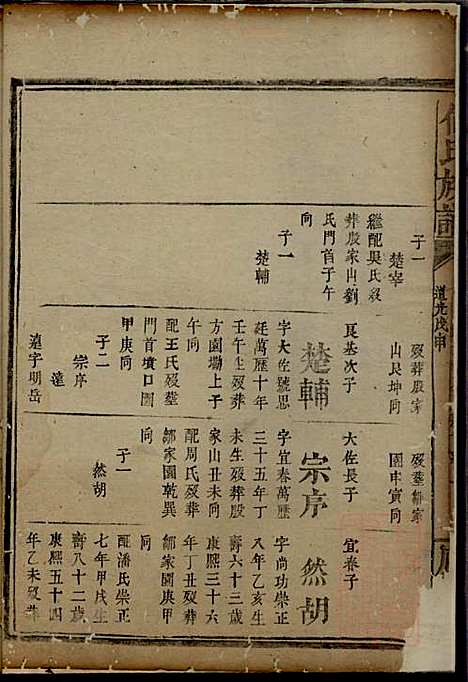 氏族譜
道光戊申
子一
楚宰
繼配吳氏歿
葬殷家山劉
氏門首子午
向
子一
楚輔
歿葬殷家
山艮坤向
艮基次子
楚輔
字大佐號思
廷萬歷十年
壬午生歿葬
方園塝上子
午向
配王氏歿墓
門首墳口園
甲庚向
子二
宗序
達
達字明岳
歿墓鄒家
園申寅向
大佐長子
宗序
字宜春萬歷
三十五年丁
未生歿葬殷
家山丑未向
配周氏歿葬
鄒家園乾巽
向
子一
然胡
宜春子
然胡
字尚功崇正
八年乙亥生
壽六十三歲
康熙三十六
年丁丑歿葬
鄒家園庚甲
向
配潘氏崇正
七年甲戌生
壽八十二歲
康熙五十四
年乙未歿葬